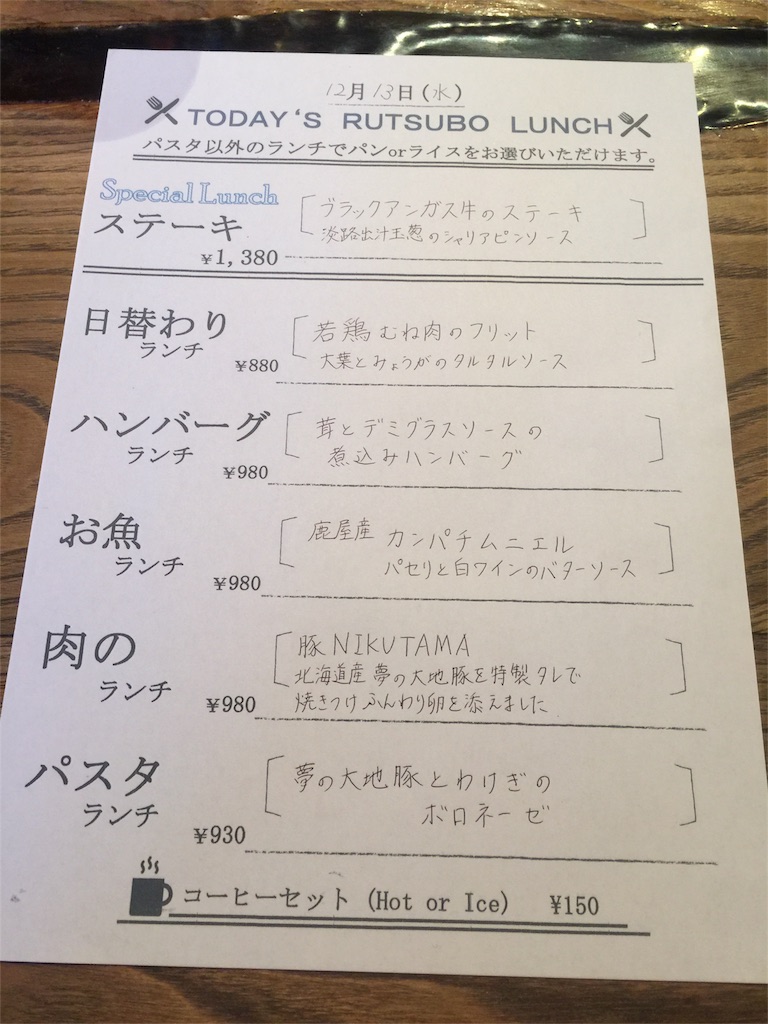 12月13日(水)
TODAY'S RUTSUBO LUNCH
パスタ以外のランチでパンorライスをお選びいただけます。
Special Lunch
ステーキ
¥1,380
ブラックアンガス牛のステーキ
淡路出汁玉葱のシャリアピンソース
日替わり
ランチ
¥880
若鶏むね肉のフリット
大葉とみょうがのタルタルソース
ハンバーグ
ランチ
¥980
茸とデミグラスソースの
煮込みハンバーグ
お魚
ランチ
¥980
鹿屋産 カンパチムニエル
パセリと白ワインのバターソース
肉の
ランチ
¥980
豚NIKUTAMA
北海道産夢の大地豚を特製タレで
焼きつけふんわり卵を添えました
パスタ
ランチ
¥930
夢の大地豚とわけぎの
ボロネーゼ
コーヒーセット (Hot or Ice) ¥150